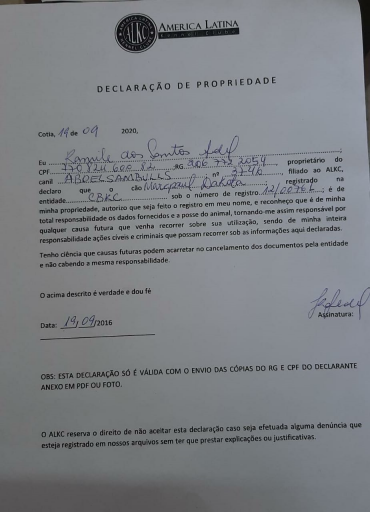 ALKC
AMERICA LATINA
KENNEL CLUB
DECLARAÇÃO DE PROPRIEDADE
Cotia, 19 de 09 2020,
Eu Ramile dos Santos Adel
CPF 170 824 600 82 RG 906 772 2054 proprietário do
canil ABDELSAMBULLS nº 3746, filiado ao ALKC,
declaro que o cão Dakota registrado na
entidade CBKC sob o número de registro ; é de
minha propriedade, autorizo que seja feito o registro em meu nome, e reconheço que é de minha
total responsabilidade os dados fornecidos e a posse do animal, tornando-me assim responsável por
qualquer causa futura que venha recorrer sobre sua utilização, sendo de minha inteira
responsabilidade ações cíveis e criminais que possam recorrer sob as informações aqui declaradas.
Tenho ciência que causas futuras podem acarretar no cancelamento dos documentos pela entidade
e não cabendo a mesma responsabilidade.
O acima descrito é verdade e dou fé
Assinatura:
Data: 19/09/2016
OBS: ESTA DECLARAÇÃO SÓ É VÁLIDA COM O ENVIO DAS CÓPIAS DO RG E CPF DO DECLARANTE
ANEXO EM PDF OU FOTO.
O ALKC reserva o direito de não aceitar esta declaração caso seja efetuada alguma denúncia que
esteja registrado em nossos arquivos sem ter que prestar explicações ou justificativas.